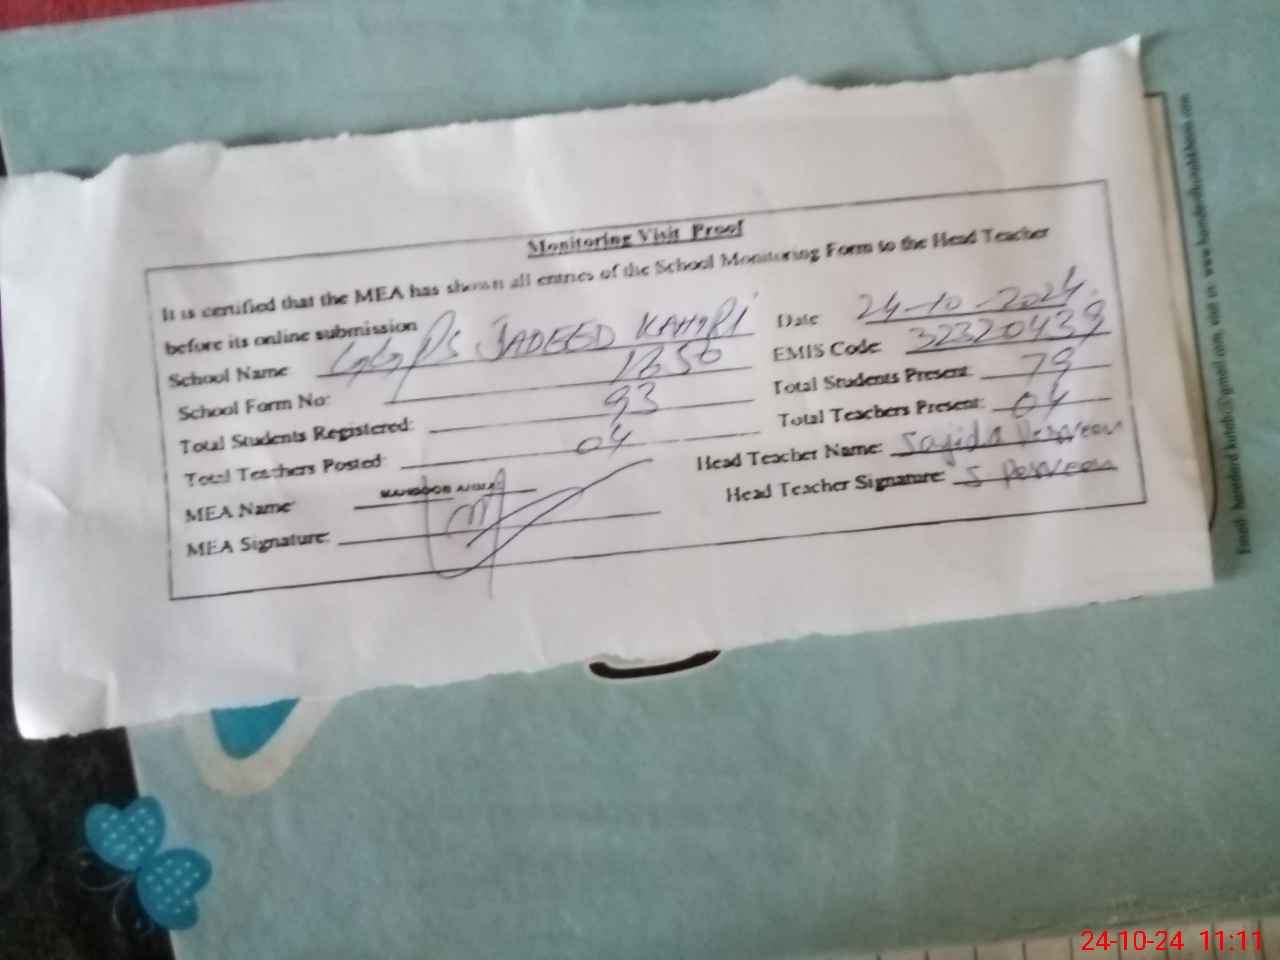 Monitoring Visit Proof
It is certified that the MEA has shown all entries of the School Monitoring Form to the Head Teacher
before its online submission
School Name GGPS JADEED KAHIRI Date 24-10-2024.
School Form No: 1250 EMIS Code: 32320439
Total Students Registered: 93 Total Students Present: 79
Total Teachers Posted: 04 Total Teachers Present: 04
MEA Name: Head Teacher Name: Sajida Perveen
MEA Signature: Head Teacher Signature: S Perveen
24-10-24 11:11